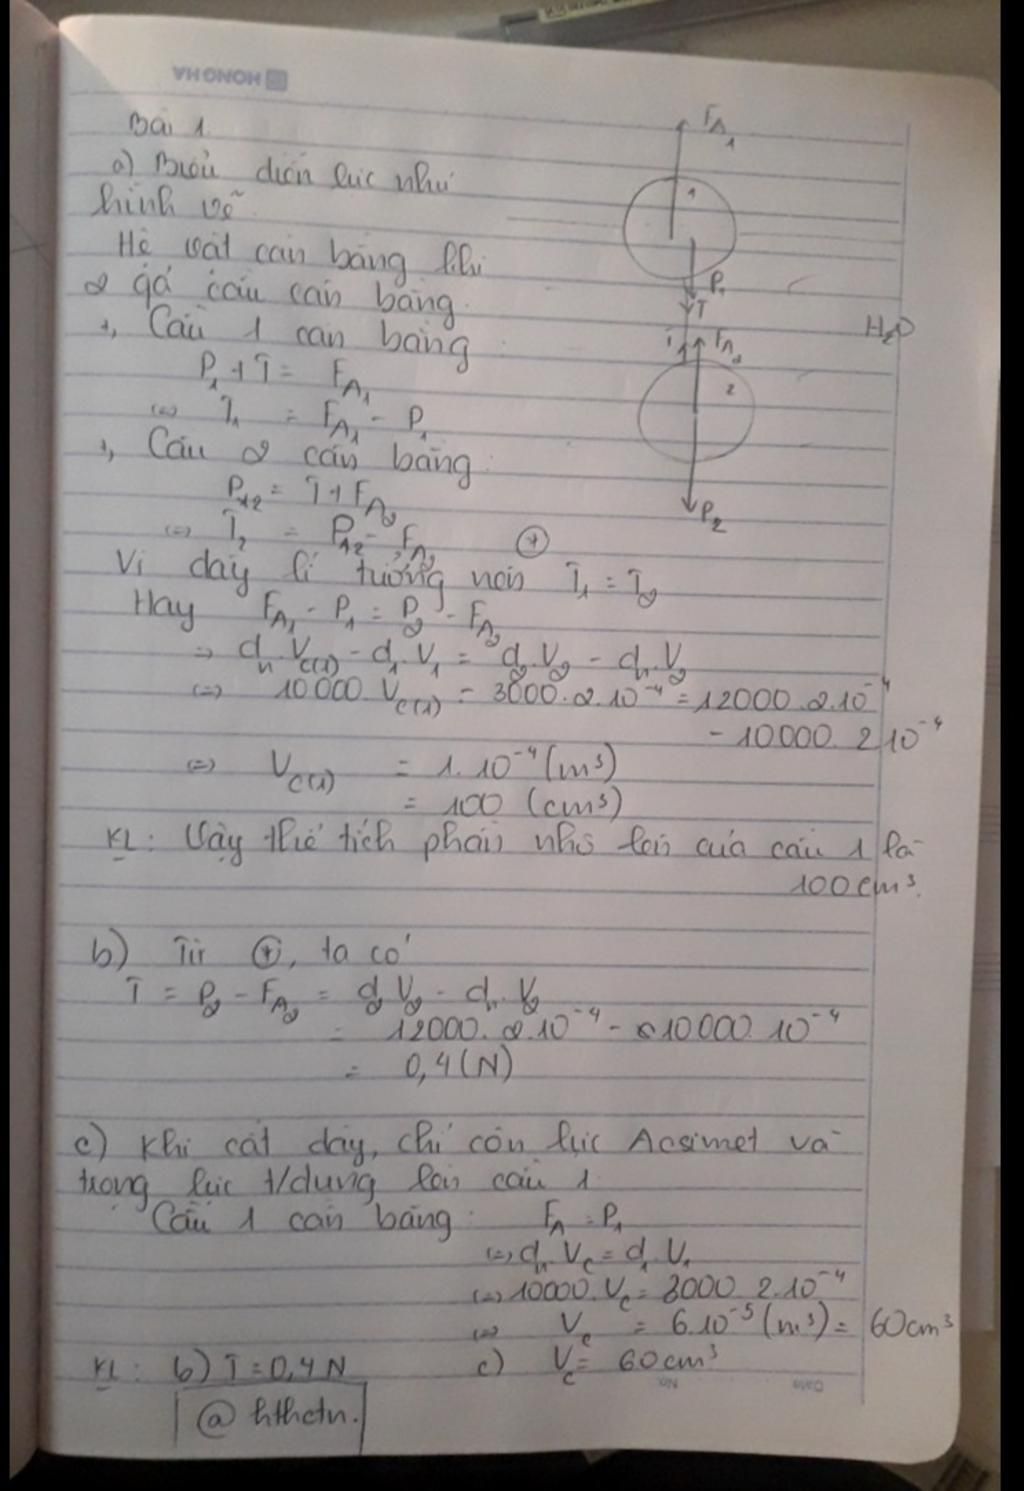 HONG HA
Bài 1
a) Biểu diễn lực như
hình vẽ
Hệ vật cân bằng khi
2 qả cầu cân bằng.
+, Cầu 1 cân bằng
P₁ + T = F_A₁
(=) T₁ = F_A₁ - P₁
+, Cầu 2 cân bằng:
P₂ = T + F_A₂
(=) T₂ = P₂ - F_A₂ (+)
Vì dây lí tưởng nên T₁ = T₂
Hay F_A₁ - P₁ = P₂ - F_A₂
=> dₙ.V_C(1) - d₁.V₁ = d₂.V₂ - dₙ.V₂
(=) 10000.V_C(1) - 3000.2.10⁻⁴ = 12000.2.10⁻⁴
- 10000.2.10⁻⁴
(=) V_C(1) = 1.10⁻⁴(m³)
= 100 (cm³)
KL: Vậy thể tích phần nhô lên của cầu 1 là
100cm³.
b) Từ (+), ta có
T = P₂ - F_A₂ = d₂V₂ - dₙ.V₂
= 12000.2.10⁻⁴ - 10000.10⁻⁴
= 0,4(N)
c) Khi cắt dây, chỉ còn lực Acsimet và
trọng lực t/dụng lên cầu 1
Cầu 1 cân bằng: F_A = P₁
(=) dₙ.V_C = d₁.V₁
(=) 10000.V_C = 3000.2.10⁻⁴
(=) V_C = 6.10⁻⁵(m³) = 60cm³
KL: b) T = 0,4N c) V_C = 60cm³
@hthctn.
F_A₁
1
P₁
T
H₂O
T F_A₂
2
P₂
No.
Date